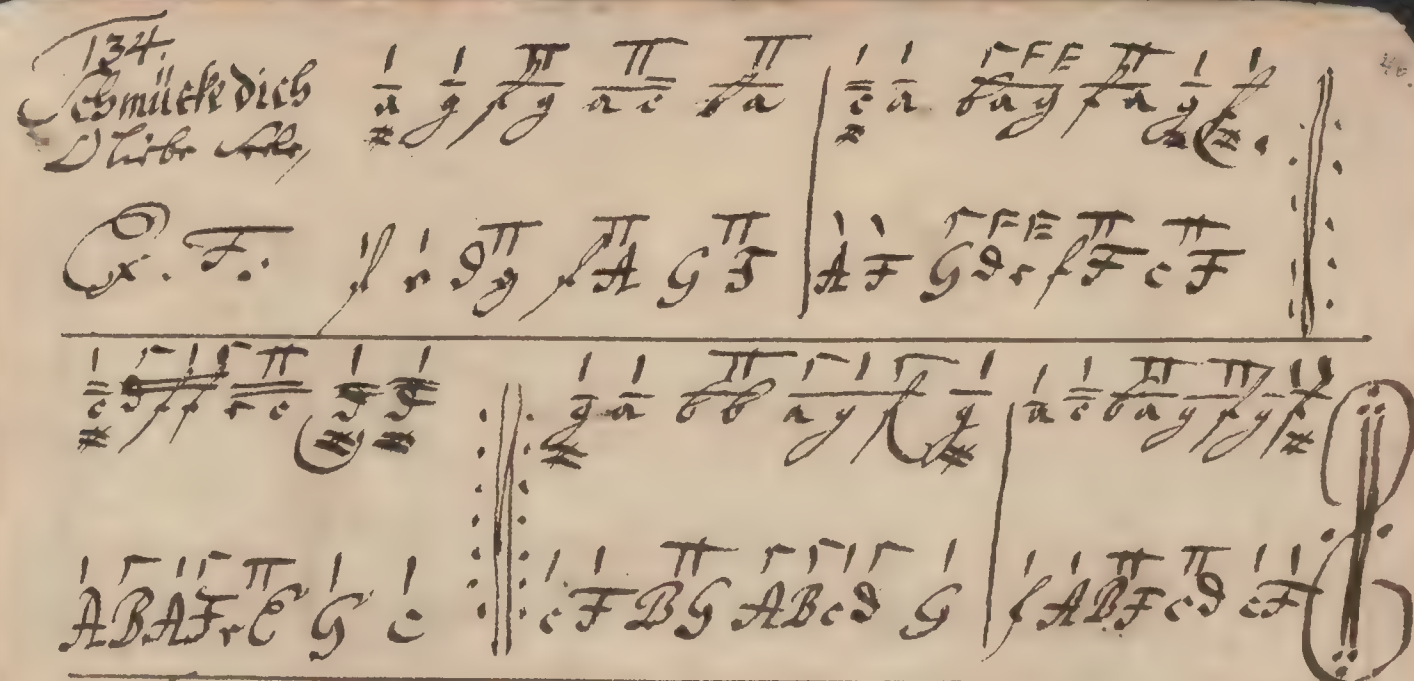 134.
Schmücke dich
O liebe Seele,
a g f g a c b a c a b a g f a g f
Ex. F. f e d g f A G F A F G d e f F c F
c d f f e c d d g a b b a g f g a c b a g f g f
A B A F e C G c c F B G A B c d G f A B F c d c F